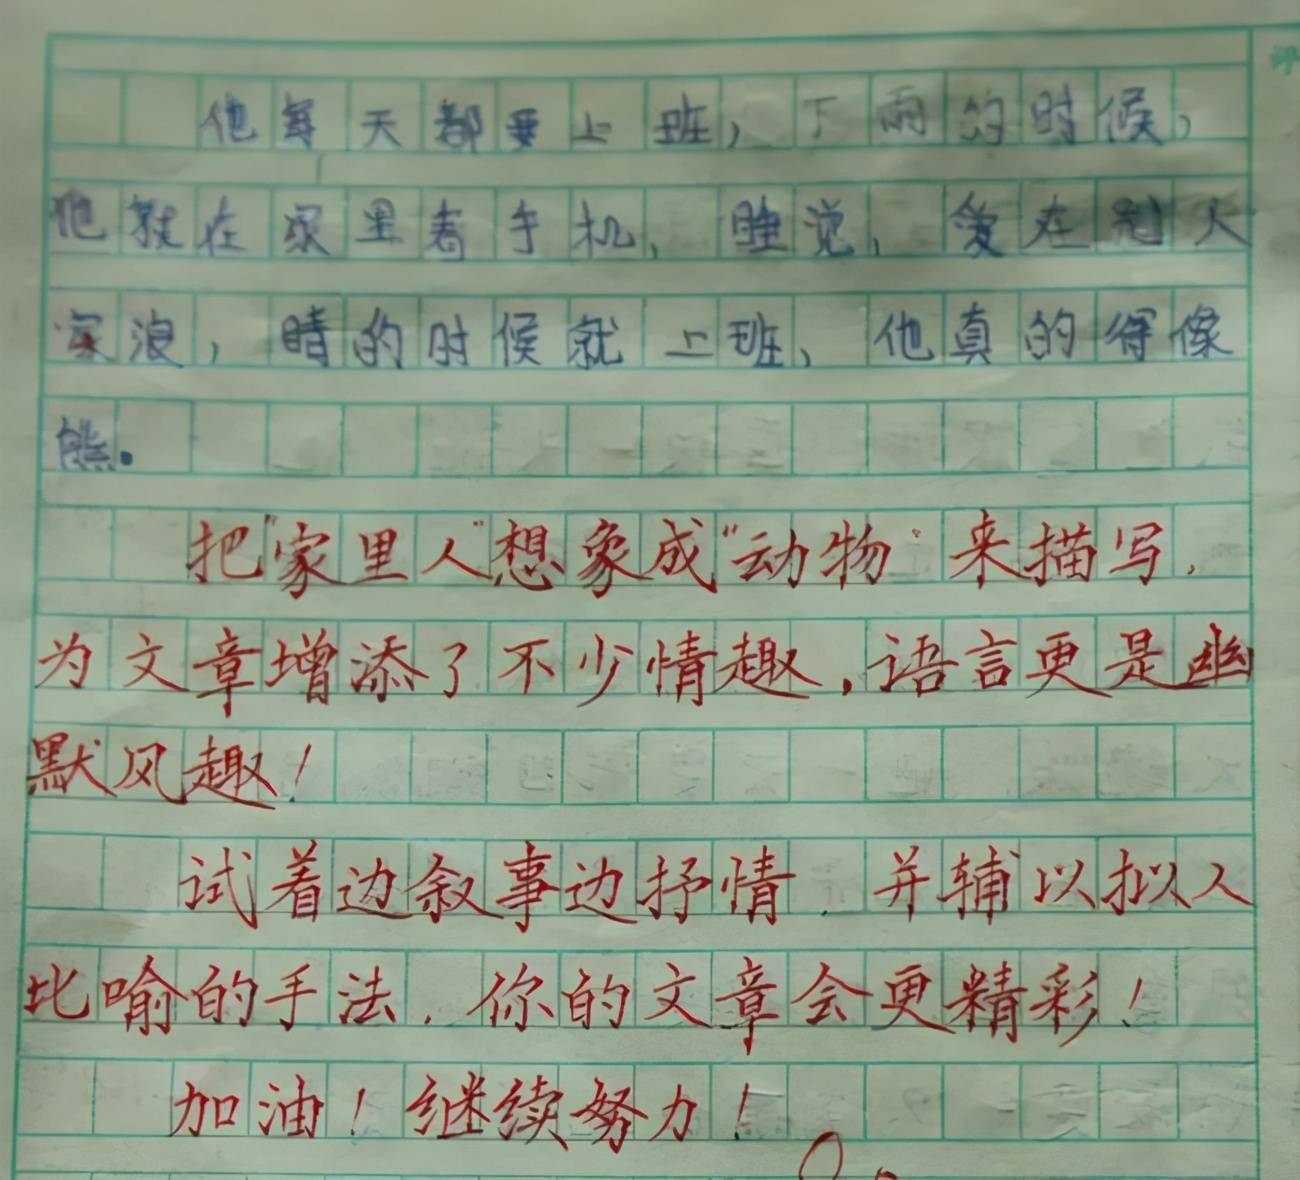 他每天都要上班，下雨的时候，
他就在家里看手机，睡觉，爱在别人
浪，晴的时候就上班，他真的得像
熊。
把"家里人"想象成"动物"来描写，
为文章增添了不少情趣，语言更是幽
默风趣！
试着边叙事边抒情，并辅以拟人
比喻的手法，你的文章会更精彩！
加油！继续努力！